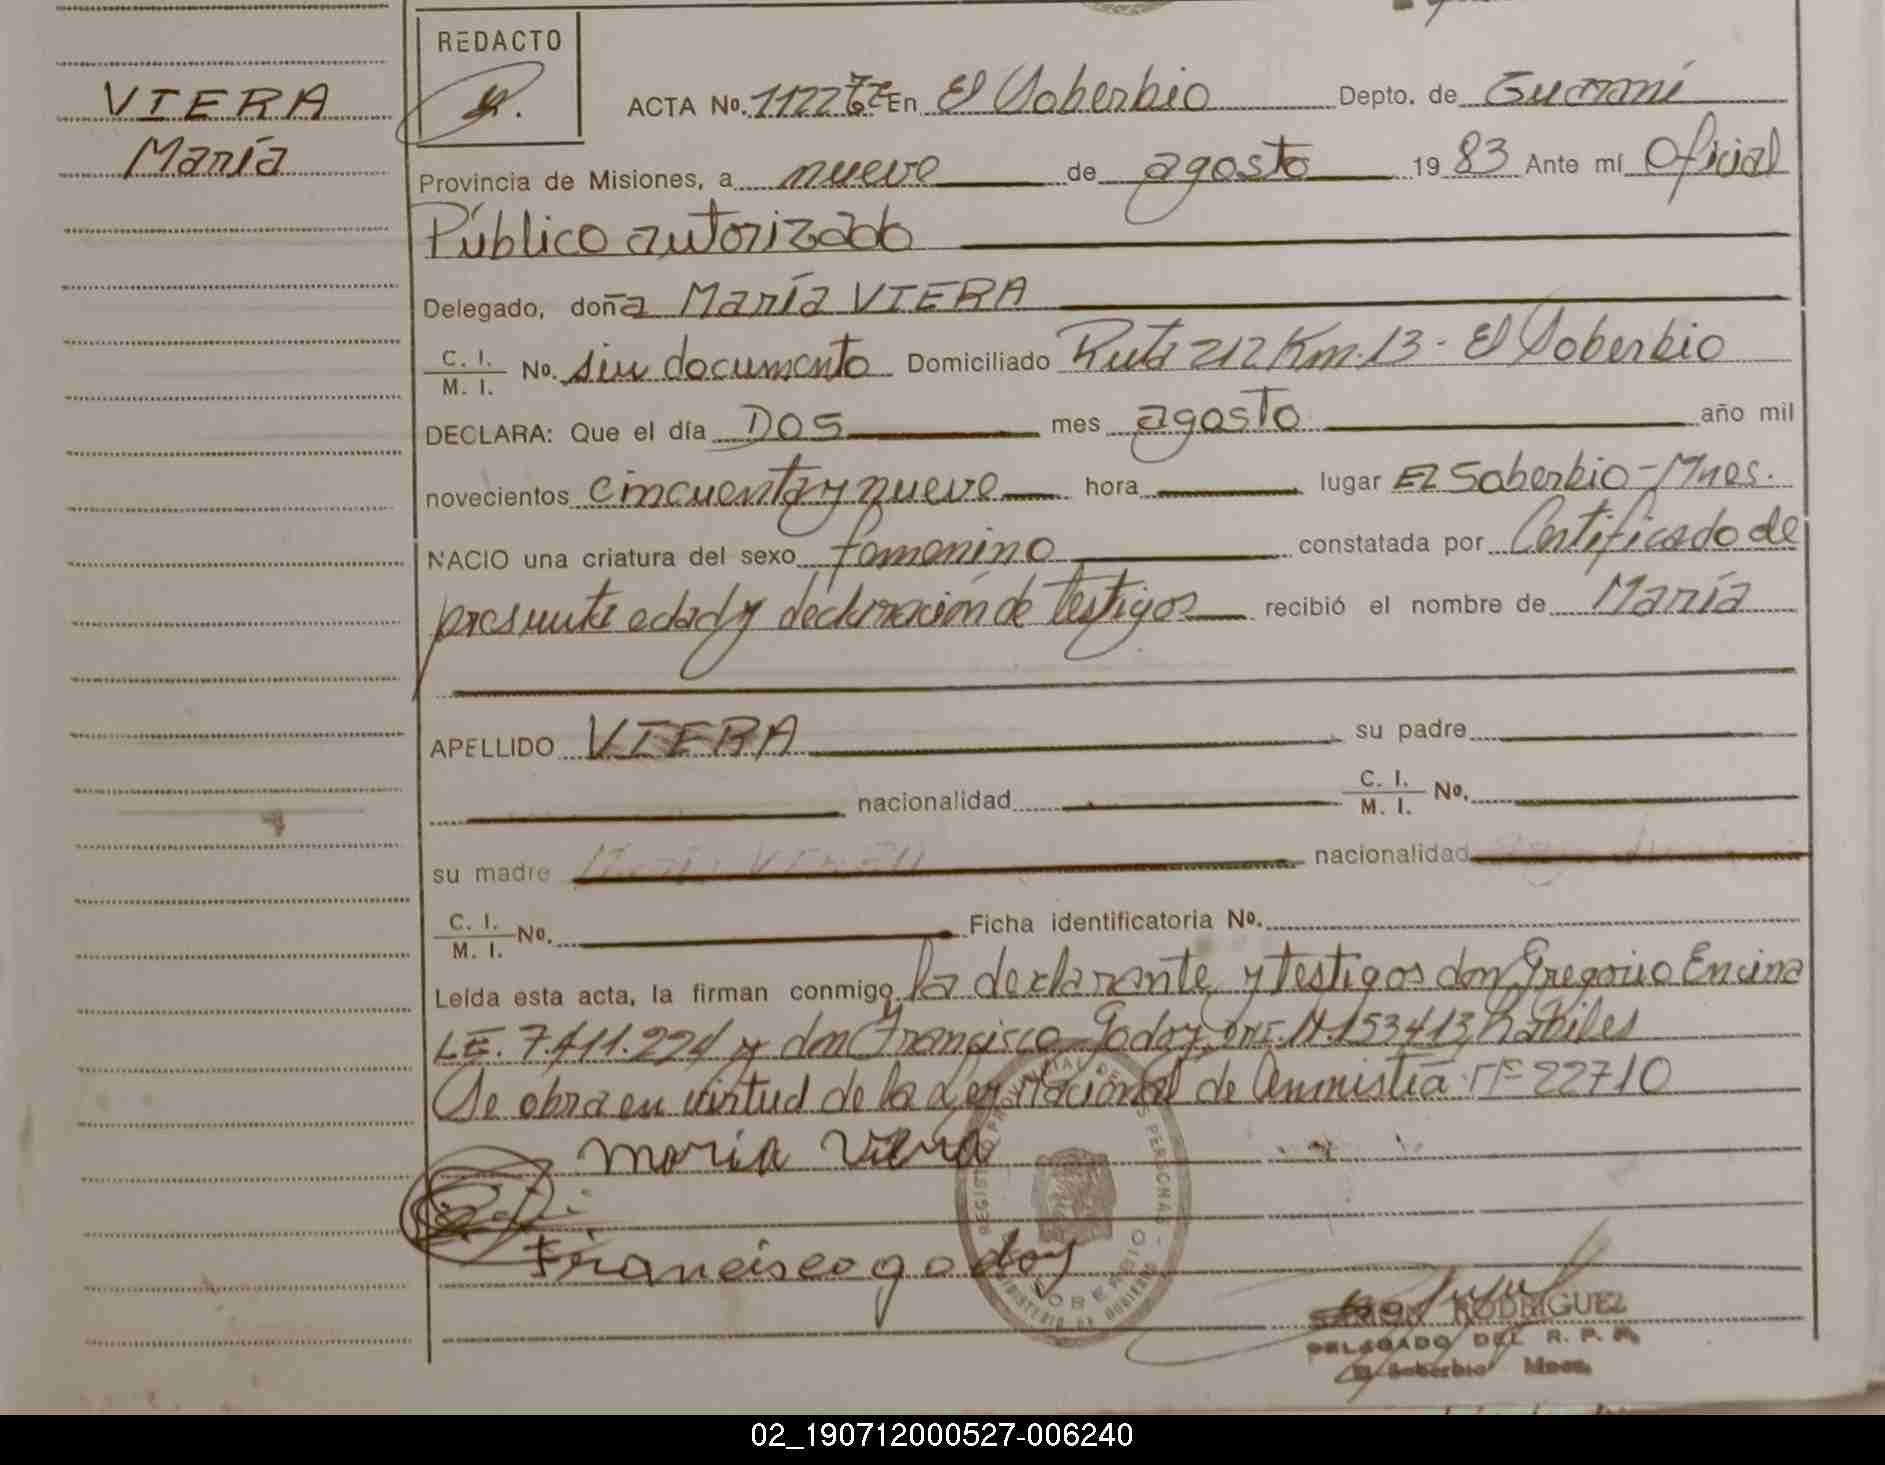 VIERA
María
REDACTO
ACTA No. En El Soberbio Depto. de Guaraní
Provincia de Misiones, a nueve de agosto 19 83 Ante mí Oficial
Público autorizado
Delegado, doña María VIERA
C. I. / M. I. No. sin documento Domiciliado Ruta 212 Km. 13 - El Soberbio
DECLARA: Que el día DOS mes agosto año mil
novecientos cincuenta y nueve hora lugar El Soberbio - Mnes.
NACIO una criatura del sexo femenino constatada por Certificado de
presunta edad y declaración de testigos recibió el nombre de María
APELLIDO VIERA su padre
nacionalidad C. I. / M. I. No.
su madre nacionalidad
C. I. / M. I. No. Ficha identificatoria No.
Leída esta acta, la firman conmigo la declarante y testigos don Gregorio Encina
LE. 7.411.224 y don Francisco Godoy, DNI. 11.153413, hábiles
Se obra en virtud de la Ley Nacional de Amnistía Nº 22710
maria viera
Francisco godoy
REGISTRO PROVINCIAL DE LAS PERSONAS
SOBERBIO
MINISTERIO DE GOBIERNO
RODRIGUEZ
DELEGADO DEL R. P. P.
El Soberbio Mnes.
02_190712000527-006240